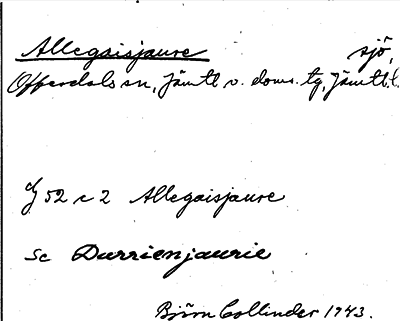 Allegaisjaure sjö,
Offerdals sn, Jämtl v. doms. tg, Jämtl. l.
52 c 2 Allegaisjaure
Se Durrienjaurie
Björn Collinder 1943.